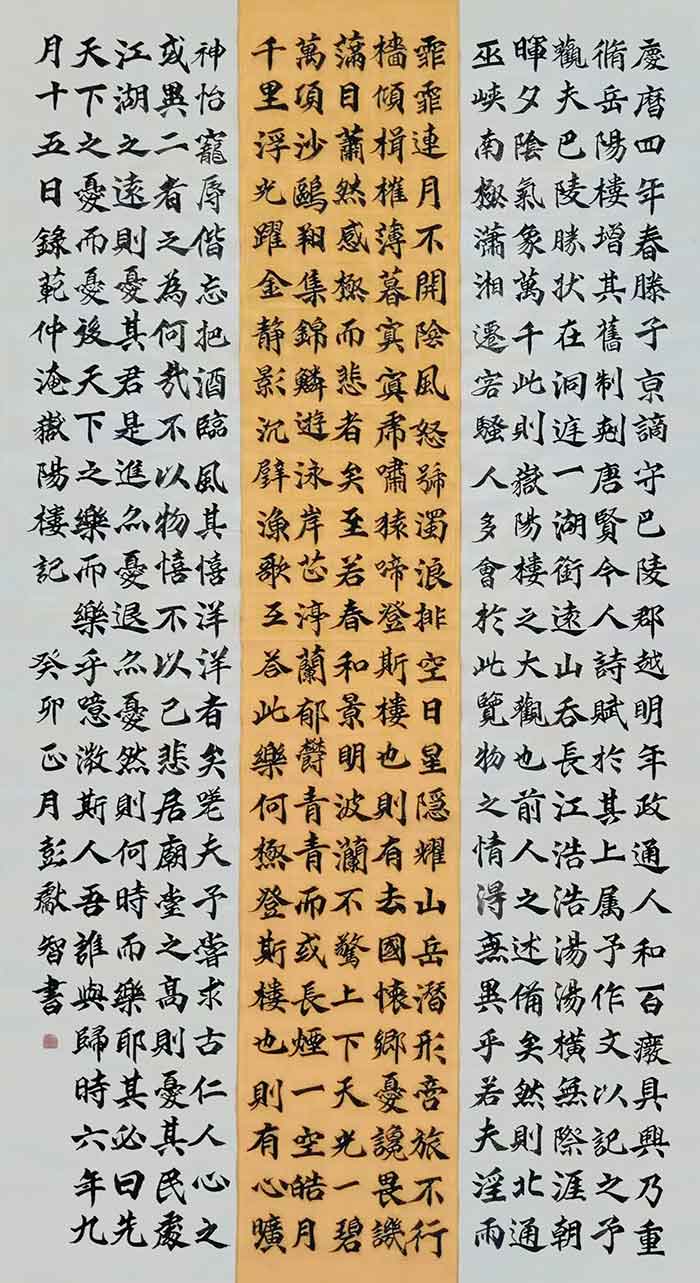 慶曆四年春滕子京謫守巴陵郡越明年政通人和百癈具興乃重
脩岳陽樓增其舊制刻唐賢今人詩賦於其上属予作文以記之予
觀夫巴陵勝状在洞庭一湖銜遠山吞長江浩浩湯湯橫無際涯朝
暉夕陰氣象萬千此則嶽陽樓之大觀也前人之述備矣然則北通
巫峽南極瀟湘遷客騷人多會於此覽物之情得無異乎若夫淫雨
霏霏連月不開陰風怒號濁浪排空日星隱耀山岳潛形啇旅不行
檣傾楫摧薄暮冥冥虎嘯猿啼登斯樓也則有去國懷鄉憂讒畏譏
滿目蕭然感極而悲者矣至若春和景明波瀾不驚上下天光一碧
萬頃沙鷗翔集錦鱗遊泳岸芷渟蘭郁欝青青而或長煙一空皓月
千里浮光躍金静影沉璧漁歌互答此樂何極登斯樓也則有心曠
神怡寵辱偕忘把酒臨風其憘洋洋者矣嗟夫予嘗求古仁人心之
或異二者之為何哉不以物憘不以己悲居廟堂之高則憂其民處
江湖之遠則憂其君是進亦憂退亦憂然則何時而樂耶其必曰先
天下之憂而憂後天下之樂而樂乎噫微斯人吾誰與歸時六年九
月十五日錄範仲淹嶽陽樓記 癸卯正月彭獻智書